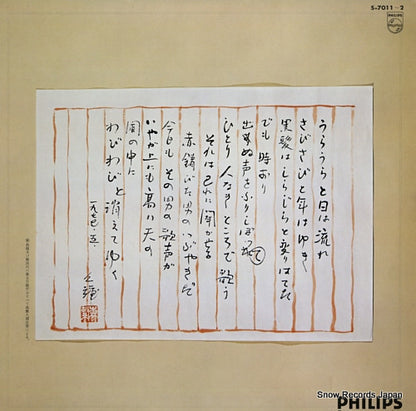 S-7011~2
PHILIPS
うらうらと日は流れ
さびさびと年はゆき
黒髪はしらじらと変りはてた
でも 時おり
出ぬ声をふりしぼって
ひとり 人なきところで歌う
それは己れに聞かせる
赤錆びた男のつぶやきだ
今日も その男の歌声が
いやが上にも高い天の
風の中に
わびわびと 消えてゆく
一九七七、五、
PHILIPS
Snow Records Japan